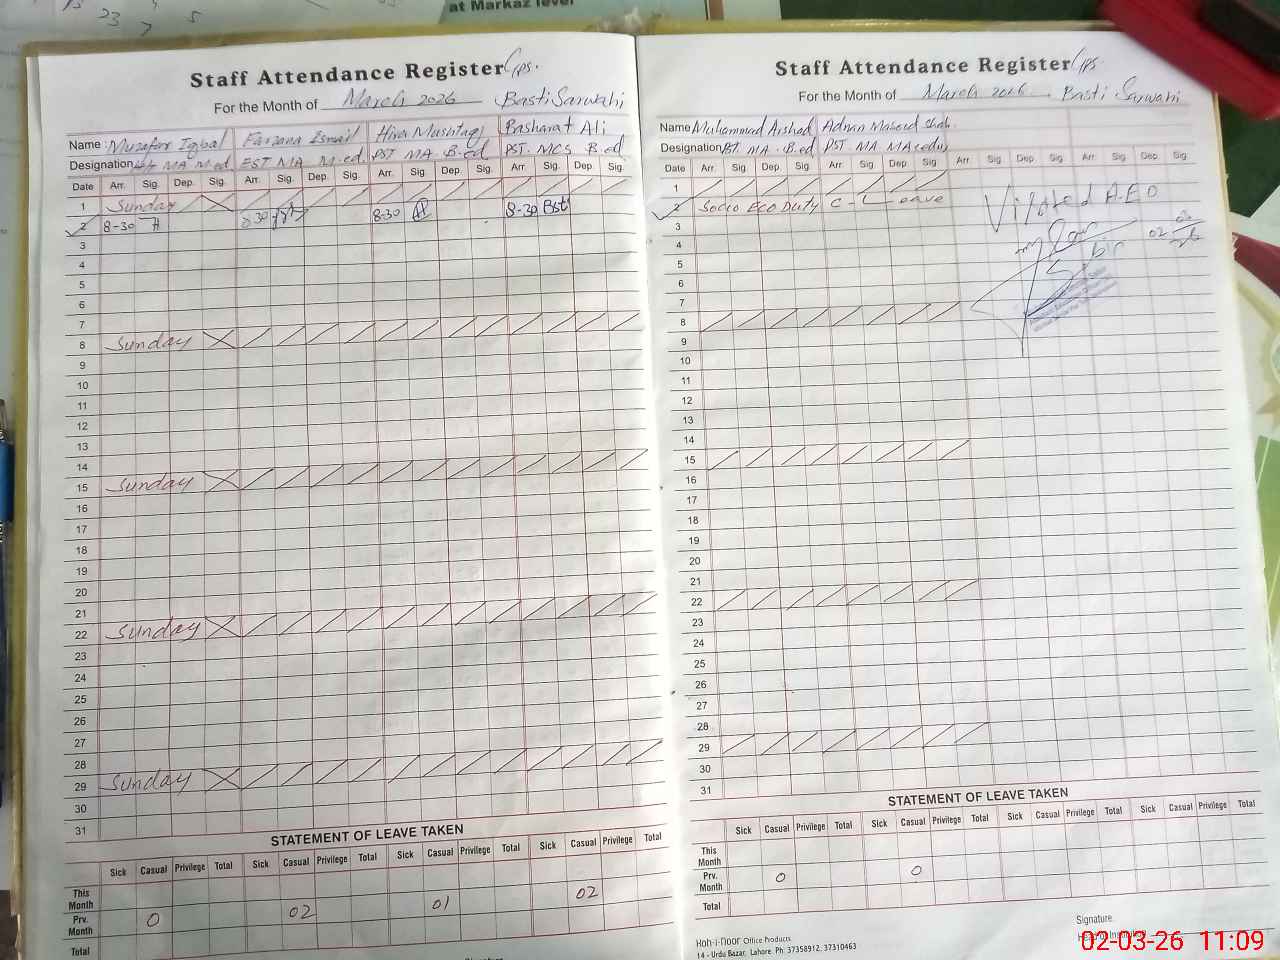 23
7 5
at Markaz level
Staff Attendance Register GPS.
For the Month of March 2026 Basti Sarwahi
Name Muzafar Iqbal Farzana Ismail Hira Mushtaq Basharat Ali
Designation MA M.ed EST MA M.ed PST MA B.ed PST. MCS B.ed
Date Arr. Sig. Dep. Sig. Arr. Sig. Dep. Sig. Arr. Sig. Dep. Sig. Arr. Sig. Dep. Sig.
1 Sunday
2 8-30 8-30 8-30 8-30
3
4
5
6
7
8 Sunday
9
10
11
12
13
14
15 Sunday
16
17
18
19
20
21
22 Sunday
23
24
25
26
27
28
29 Sunday
30
31
STATEMENT OF LEAVE TAKEN
Sick Casual Privilege Total Sick Casual Privilege Total Sick Casual Privilege Total Sick Casual Privilege Total
This Month
Prv. Month 0 02 01 02
Total
Staff Attendance Register GPS
For the Month of March 2026. Basti Sarwahi
Name Muhammad Arshad Adnan Masood Shah.
Designation PST. MA. B.ed PST MA MA edu
Date Arr. Sig. Dep. Sig. Arr. Sig. Dep. Sig. Arr. Sig. Dep. Sig. Arr. Sig. Dep. Sig.
1
2 Socio Eco Duty C-Leave
Visited A.E.O
02
3
4
5
6
7
8
9
10
11
12
13
14
15
16
17
18
19
20
21
22
23
24
25
26
27
28
29
30
31
STATEMENT OF LEAVE TAKEN
Sick Casual Privilege Total Sick Casual Privilege Total Sick Casual Privilege Total
This Month
Prv. Month 0 0
Total
Signature:
Hoh-i-noor Office Products
14 - Urdu Bazar, Lahore. Ph: 37358912, 37310463
02-03-26 11:09